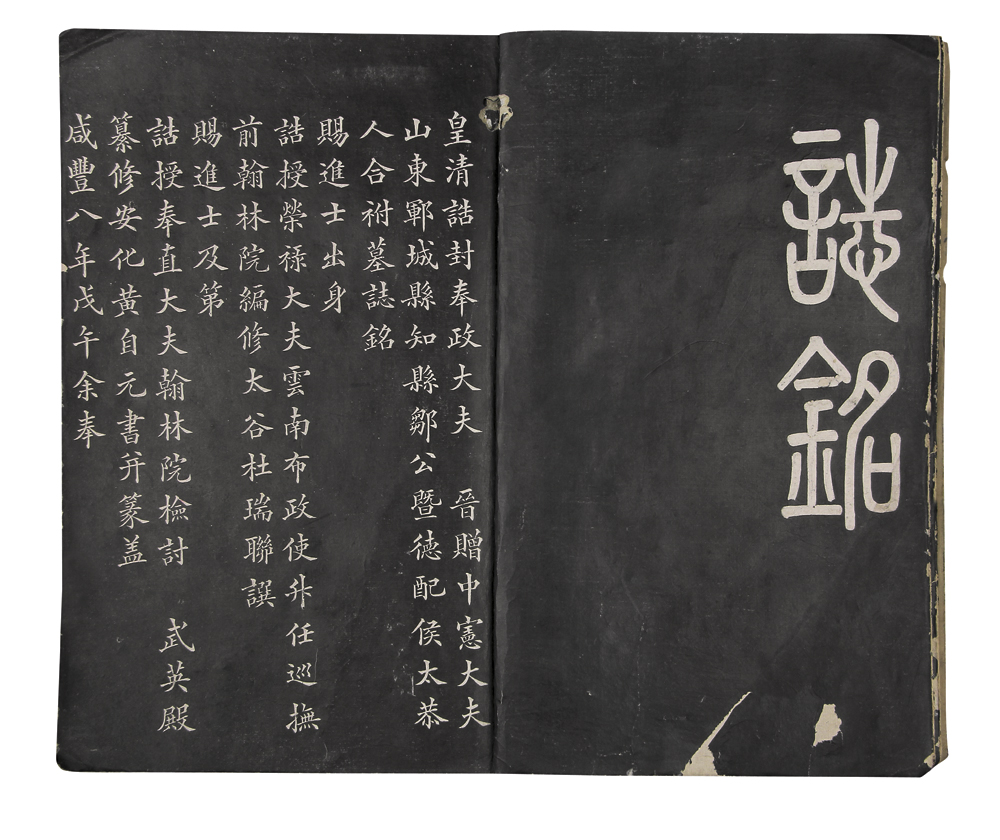 誌銘
皇清誥封奉政大夫 晉贈中憲大夫
山東鄆城縣知縣鄒公暨德配侯太恭
人合祔墓誌銘
賜進士出身
誥授榮祿大夫雲南布政使升任巡撫
前翰林院編修太谷杜瑞聯譔
賜進士及第
誥授奉直大夫翰林院檢討 武英殿
纂修安化黃自元書并篆盖
咸豐八年戊午余奉